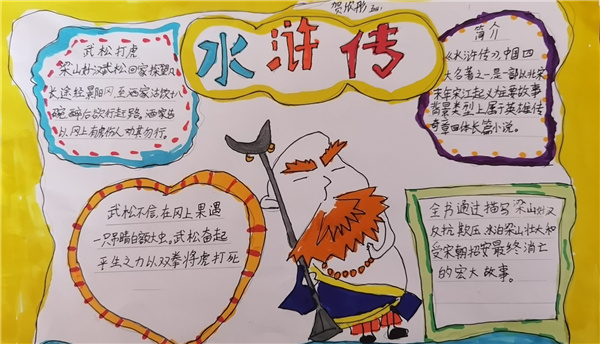 贺欣彤
水浒传
武松打虎
梁山好汉武松回家探望兄
长途经景阳冈,在酒家饮十八
碗醉后欲行赶路,酒家告
以冈上有虎伤人劝其勿行。
简介
《水浒传》,中国四
大名著之一是一部以北宋
末年宋江起义为主要故事
背景类型上属于英雄传
奇章回体长篇小说。
武松不信,在冈上果遇
一只吊睛白额大虫,武松奋起
平生之力以双拳将虎打死
全书通过描写梁山好汉
反抗欺压、水泊梁山壮大和
受宋朝招安最终消亡
的宏大故事。